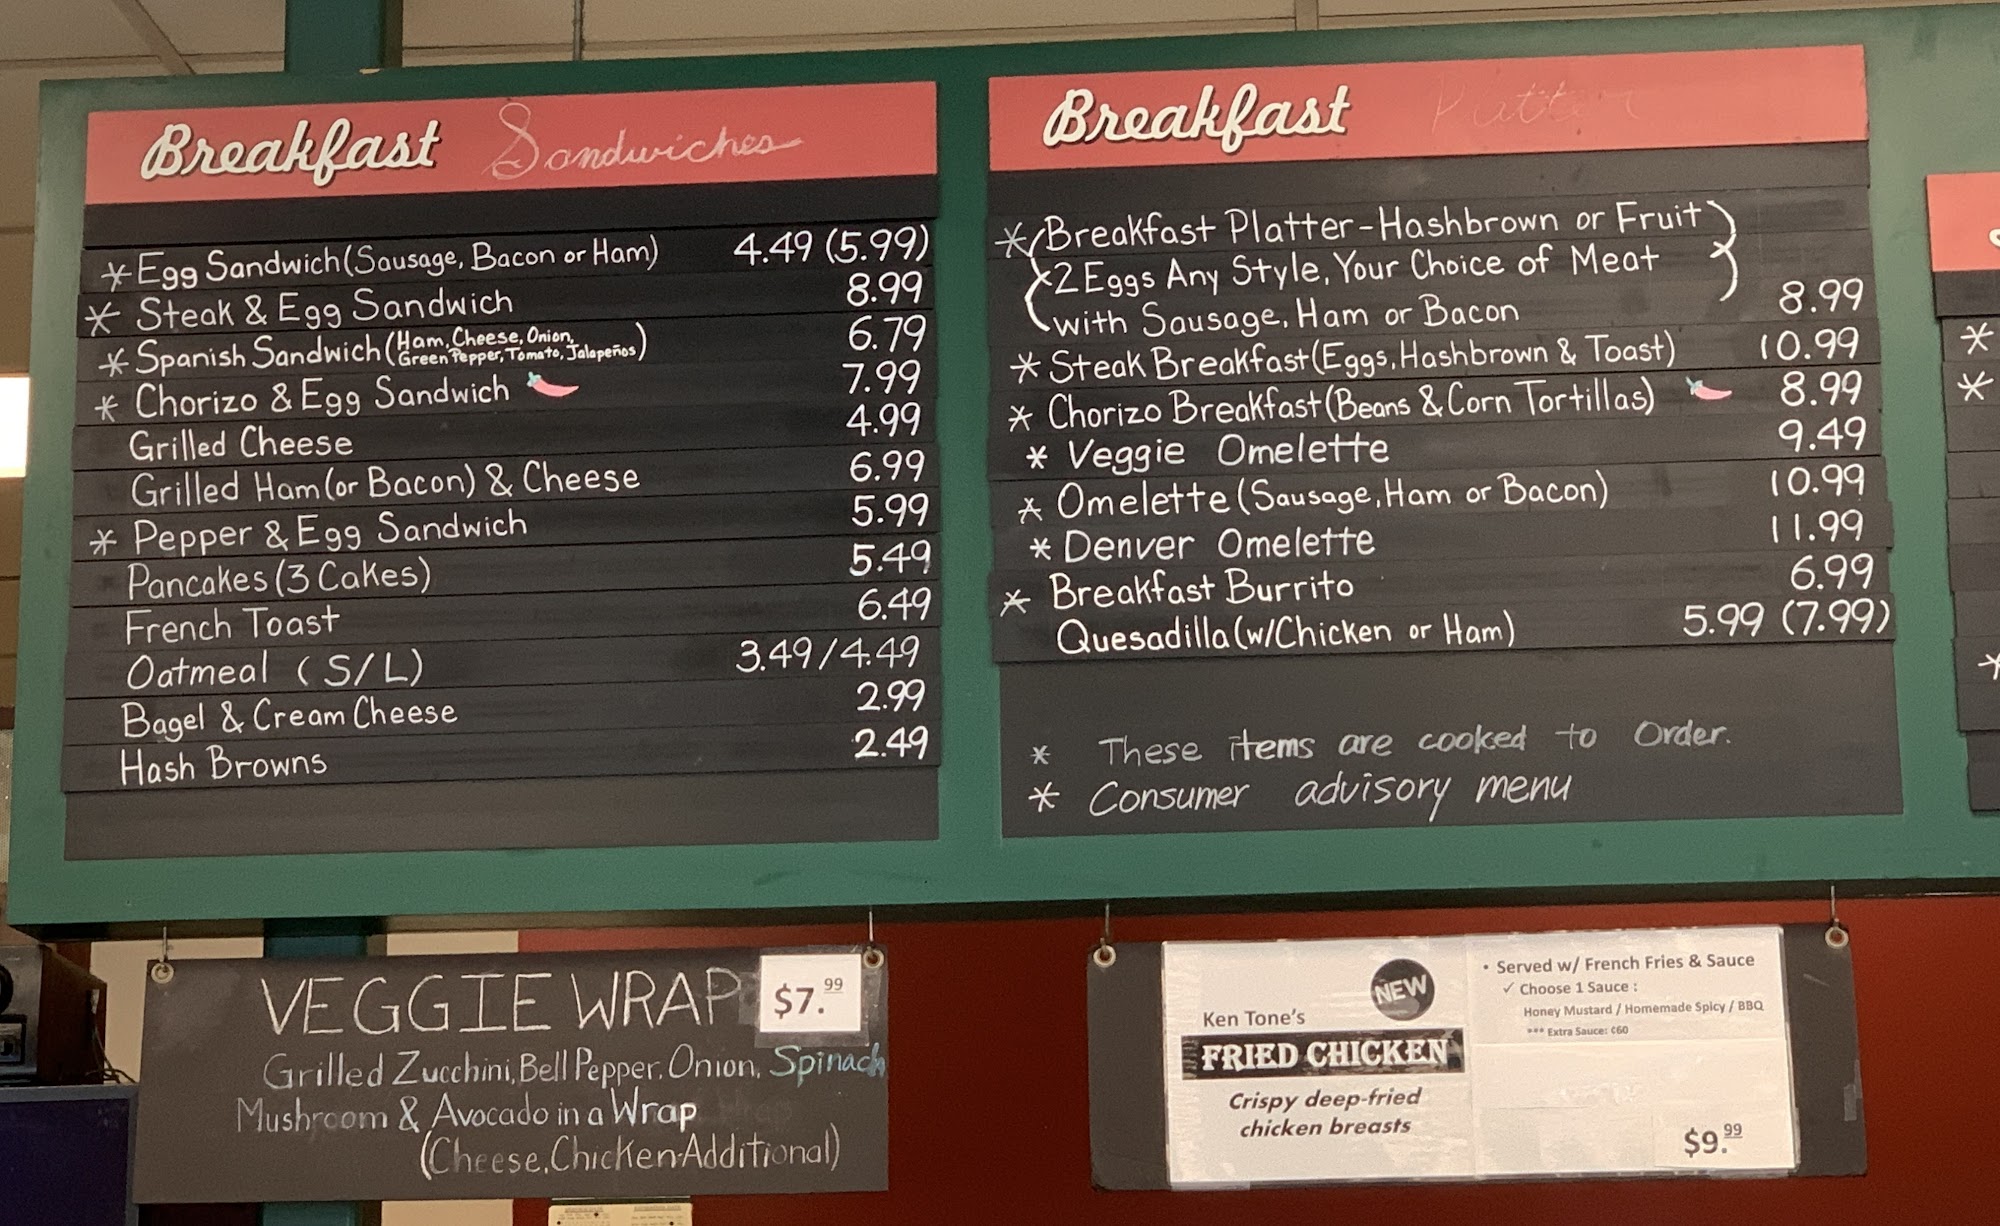 Breakfast Sandwiches
* Egg Sandwich (Sausage, Bacon or Ham) 4.49 (5.99)
* Steak & Egg Sandwich 8.99
* Spanish Sandwich (Ham, Cheese, Onion, Green Pepper, Tomato, Jalapeños) 6.79
* Chorizo & Egg Sandwich 7.99
Grilled Cheese 4.99
Grilled Ham (or Bacon) & Cheese 6.99
* Pepper & Egg Sandwich 5.99
Pancakes (3 Cakes) 5.49
French Toast 6.49
Oatmeal (S/L) 3.49/4.49
Bagel & Cream Cheese 2.99
Hash Browns 2.49
Breakfast
* Breakfast Platter - Hashbrown or Fruit
2 Eggs Any Style, Your Choice of Meat
with Sausage, Ham or Bacon 8.99
* Steak Breakfast (Eggs, Hashbrown & Toast) 10.99
* Chorizo Breakfast (Beans & Corn Tortillas) 8.99
* Veggie Omelette 9.49
* Omelette (Sausage, Ham or Bacon) 10.99
* Denver Omelette 11.99
* Breakfast Burrito 6.99
Quesadilla (w/Chicken or Ham) 5.99 (7.99)
* These items are cooked to Order.
* Consumer advisory menu
VEGGIE WRAP $7.99
Grilled Zucchini, Bell Pepper, Onion, Spinach
Mushroom & Avocado in a Wrap
(Cheese, Chicken-Additional)
NEW
Ken Tone's
FRIED CHICKEN
Crispy deep-fried
chicken breasts
• Served w/ French Fries & Sauce
✓ Choose 1 Sauce :
Honey Mustard / Homemade Spicy / BBQ
*** Extra Sauce: ¢60
$9.99